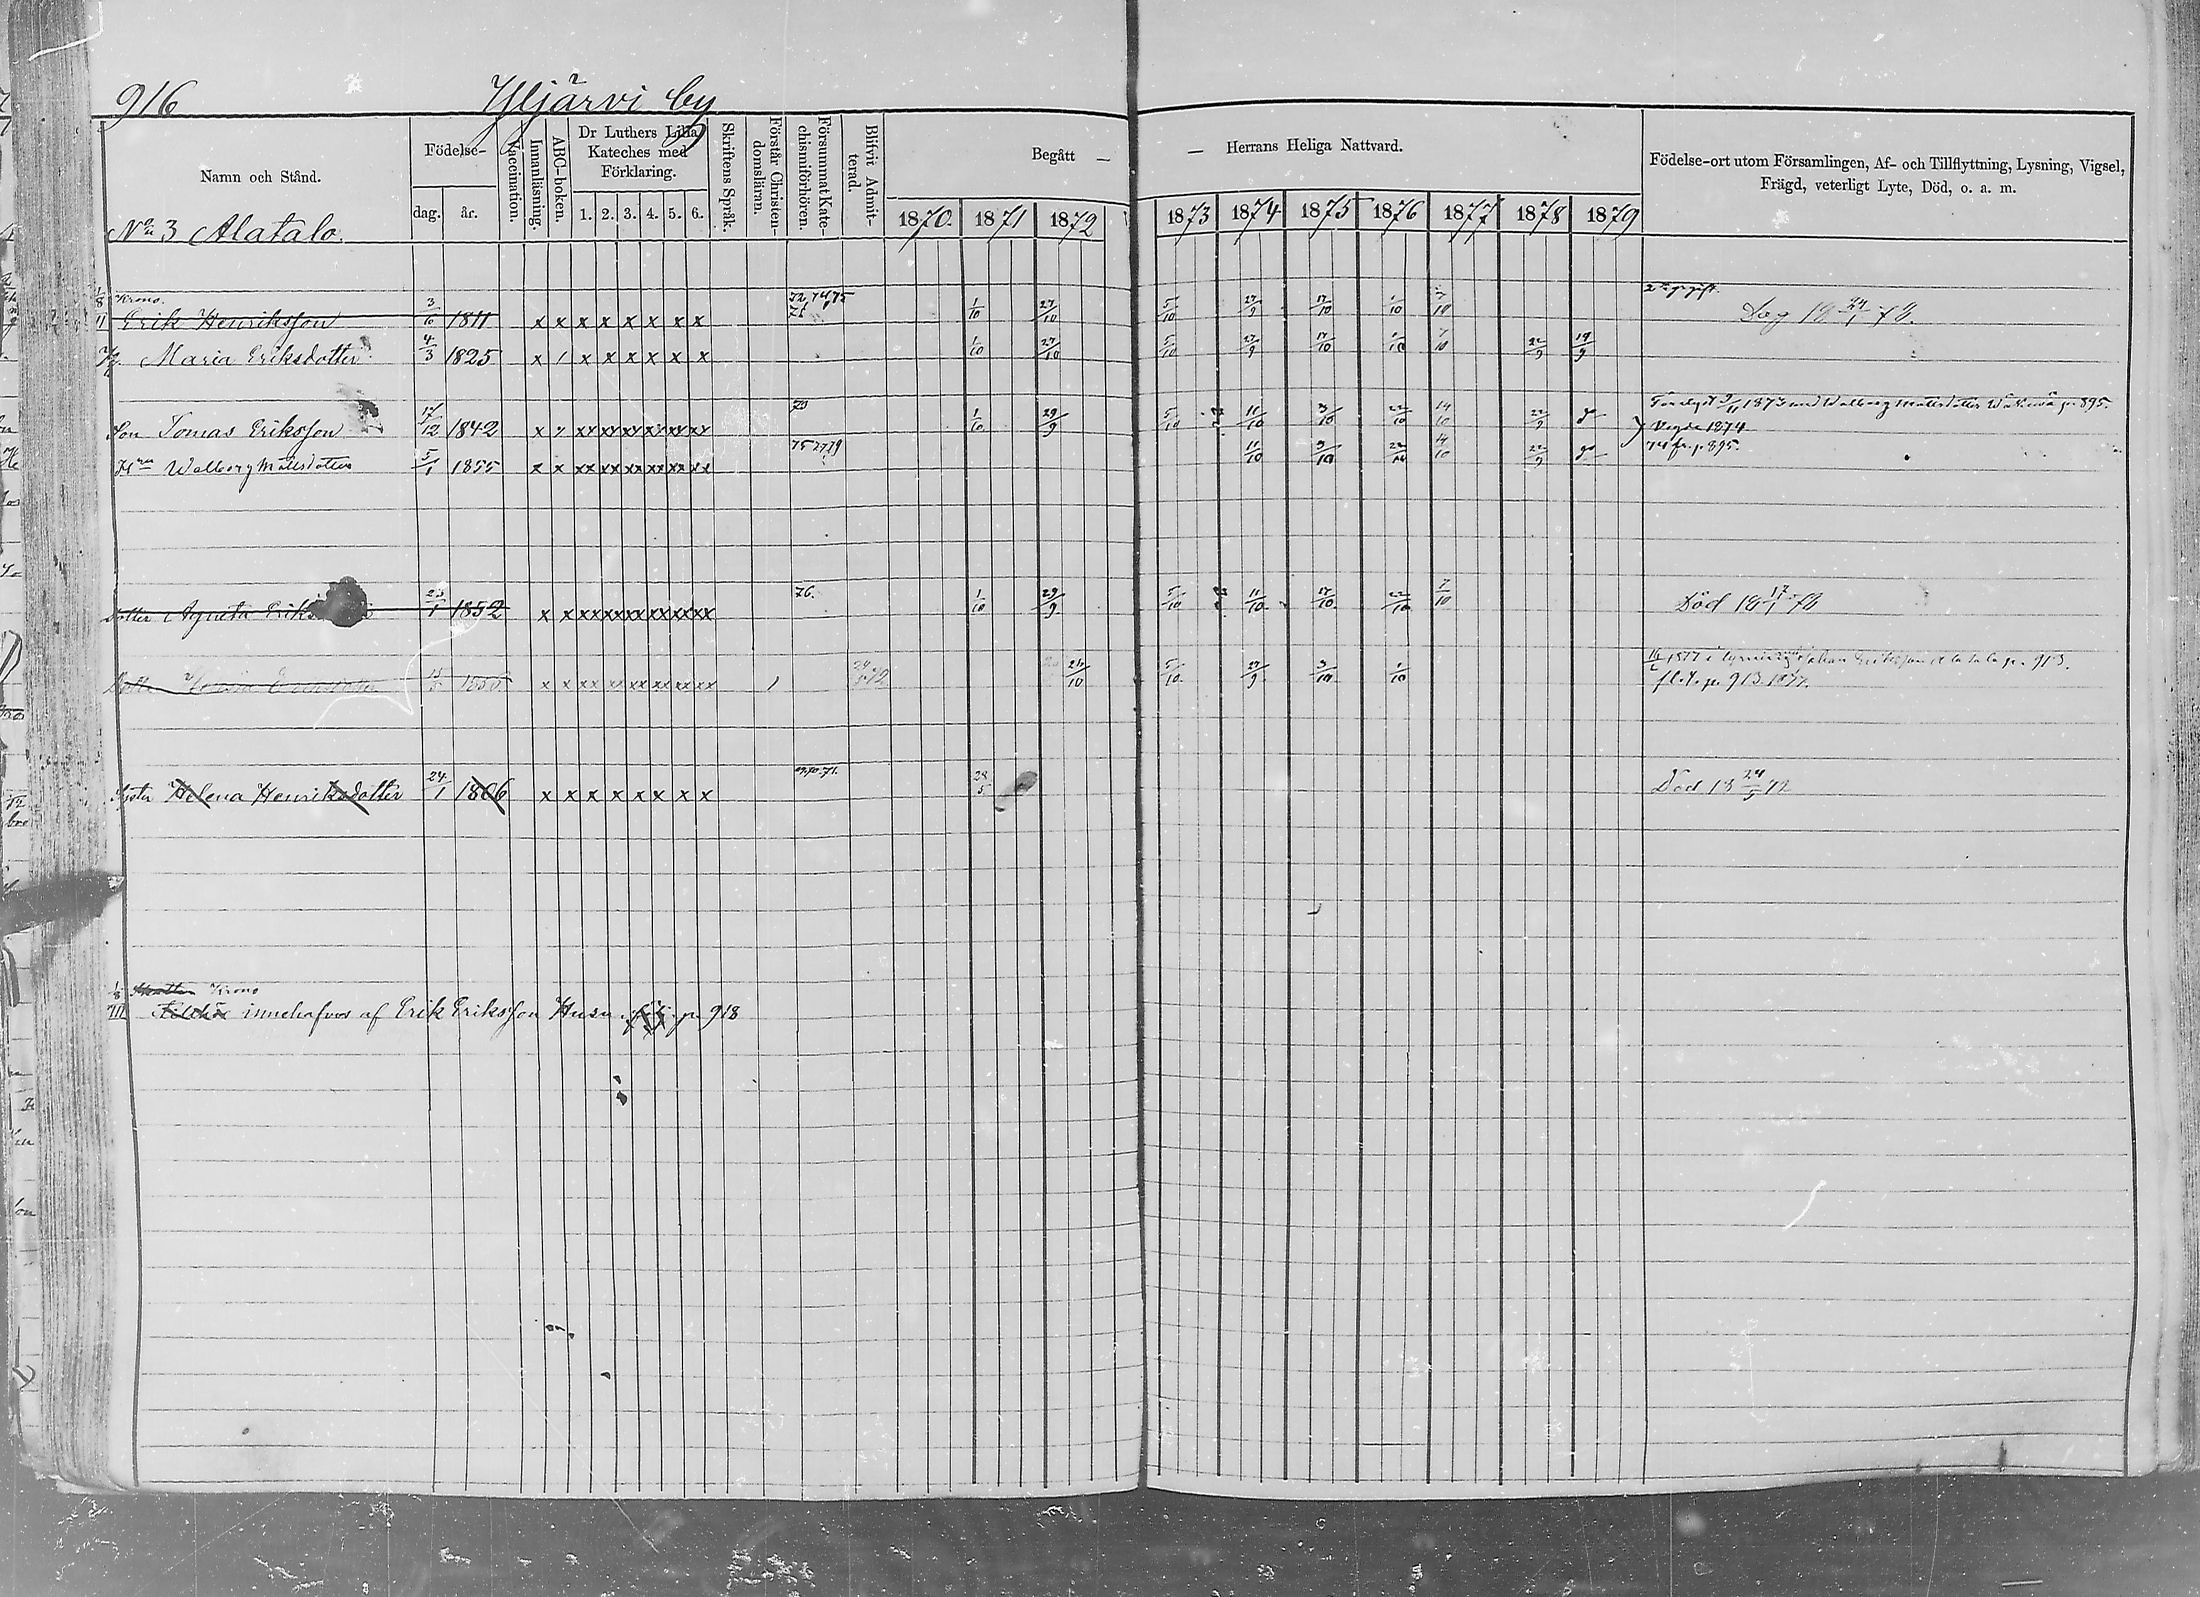 916 Yljärvi by
Namn och Stånd. Födelse- dag. år. Vaccination. Innanläsning. ABC-boken. Dr Luthers Lilla Kateches med Förklaring. 1. 2. 3. 4. 5. 6. Skriftens Språk. Förstår Christendomsläran. Försummat Katechismiförhören. Blifvit Admitterad. Begått — — Herrans Heliga Nattvard. Födelse-ort utom Församlingen, Af- och Tillflyttning, Lysning, Vigsel, Frägd, veterligt Lyte, Död, o. a. m.
1870. 1871 1872 1873 1874 1875 1876 1877 1878 1879
No 3 Alatalo.
1/8 Krono. 72, 74, 75
Erik Henriksson 3/6 1811 x x x x x x x x 1/10 27/10 5/10 27/9 17/10 1/10 7/10 18 24/1 78.
Maria Eriksdotter 4/3 1825 x / x x x x x x 1/10 27/10 5/10 27/9 17/10 1/10 7/10 22/9 19/9
Son Tomas Eriksson 17/12 1842 x x xx xx xx xx xx xx 73 1/10 29/9 5/10 11/10 3/10 22/10 14/10 22/9 1873 med Walborg Mattsdotter p. 895.
Vigde 1874
Hru Walborg Mattsdotter 5/1 1855 x x xx xx xx xx xx xx 75 77 79 11/10 3/10 22/10 14/10 22/9 74 fr. p. 895.
Dotter Agneta 23/1 1852 x x xx xx xx xx xx xx 76. 1/10 29/9 5/10 11/10 17/10 22/10 7/10 Död 18 17/1 78
Dotter Maria Eriksdotter x x xx xx xx xx xx xx / 5/10 27/9 3/10 1/10 1877 Johan Eriksson Alatalo p. 913.
p. 913 1877.
Syster Helena Henriksdotter 24/1 1806 x x x x x x x x 70. 71. 28/5 Död 18 24/5 72
1/8 Krono
innehafves af Erik Eriksson Husu p. 918